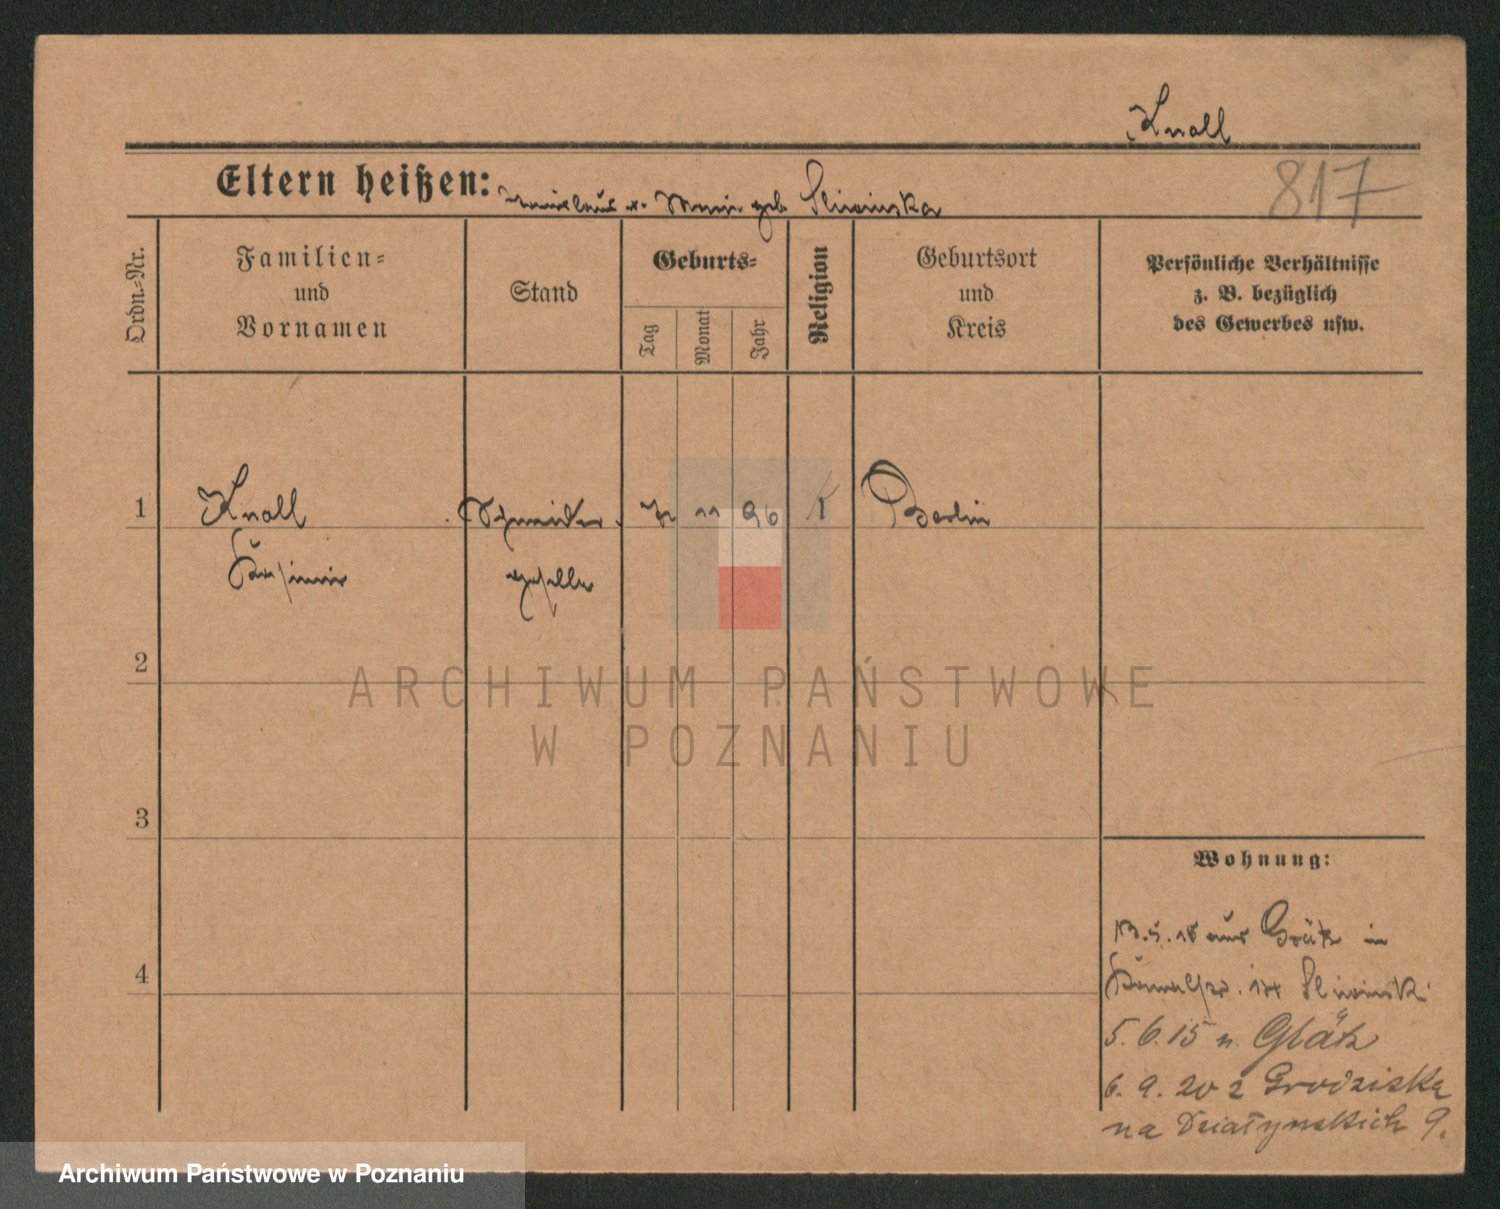 Knoll
817
Eltern heißen: u. geb. Sliwinska
Ordn.-Nr.
Familien-
und
Vornamen
Stand
Geburts-
Tag
Monat
Jahr
Religion
Geburtsort
und
Kreis
Persönliche Verhältnisse
z. B. bezüglich
des Gewerbes usw.
1 Knoll Schneider 11 96 k Berlin
Kasimir geselle
2
3
4
Wohnung:
13.5.15 aus Grätz in
Sliwinski
5.6.15 n. Grätz
6.9.20 z Grodziska
na Działynskich 9.
ARCHIWUM PAŃSTWOWE
W POZNANIU
Archiwum Państwowe w Poznaniu